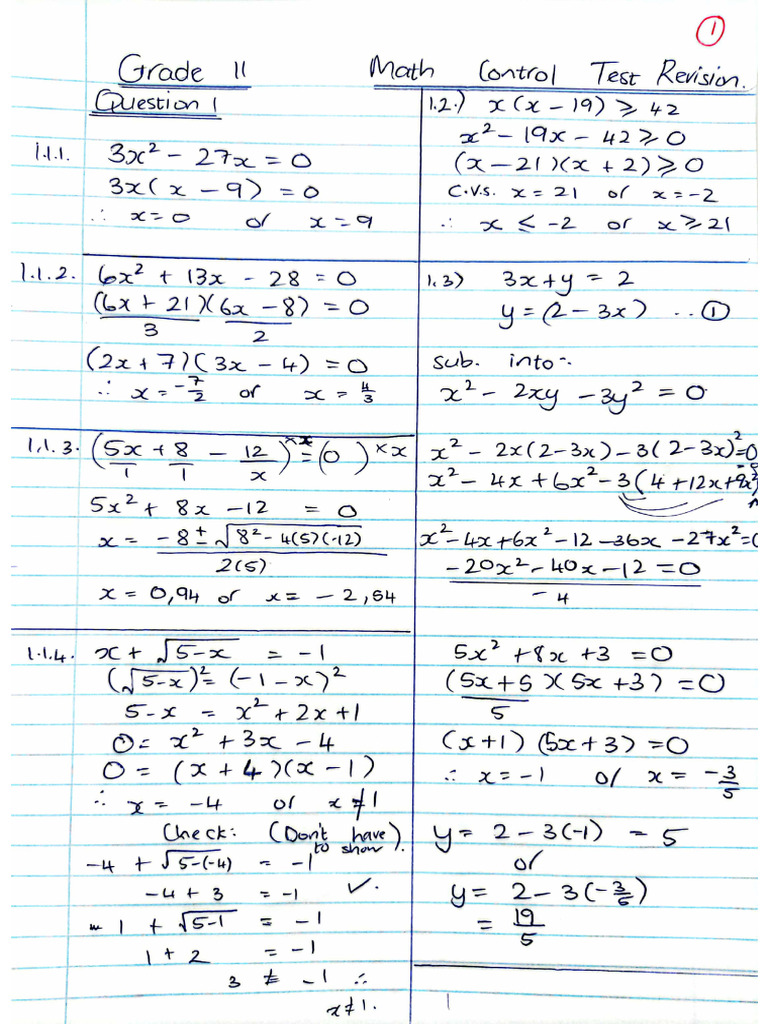 1
Grade 11 Math Control Test Revision.
Question 1
1.1.1. 3x² - 27x = 0
3x(x - 9) = 0
∴ x=0 or x = 9
1.1.2. 6x² + 13x - 28 = 0
(6x + 21)(6x - 8) = 0
3 2
(2x + 7)(3x - 4) = 0
∴ x = -7/2 or x = 4/3
1.1.3. (5x/1 + 8/1 - 12/x)^×x = (0)^×x
5x² + 8x - 12 = 0
x = -8 ± √8² - 4(5)(-12)
2(5)
x = 0,94 or x = - 2,54
1.1.4. x + √5-x = -1
(√5-x)² = (-1 - x)²
5-x = x² + 2x + 1
0 = x² + 3x - 4
0 = (x + 4)(x - 1)
∴ x = -4 or x ≠ 1
Check: (Don't have to show).
-4 + √5-(-4) = -1
-4 + 3 = -1 ✓.
1 + √5-1 = -1
1 + 2 = -1
3 ≠ -1 ∴
x ≠ 1.
1.2.) x(x - 19) ⩾ 42
x² - 19x - 42 ⩾ 0
(x - 21)(x + 2) ⩾ 0
C.V.s. x = 21 or x = -2
∴ x ⩽ -2 or x ⩾ 21
1.3) 3x + y = 2
y = (2 - 3x) .. ①
sub. into:-
x² - 2xy - 3y² = 0
x² - 2x(2-3x) - 3(2-3x)² = 0
x² - 4x + 6x² - 3(4 + 12x + 9x²
x² - 4x + 6x² - 12 - 36x - 27x² = 0
-20x² - 40x - 12 = 0
-4
5x² + 8x + 3 = 0
(5x + 5)(5x + 3) = 0
5
(x+1)(5x+3) = 0
∴ x = -1 or x = -3/5
y = 2 - 3(-1) = 5
or
y = 2 - 3(-3/5)
= 19/5